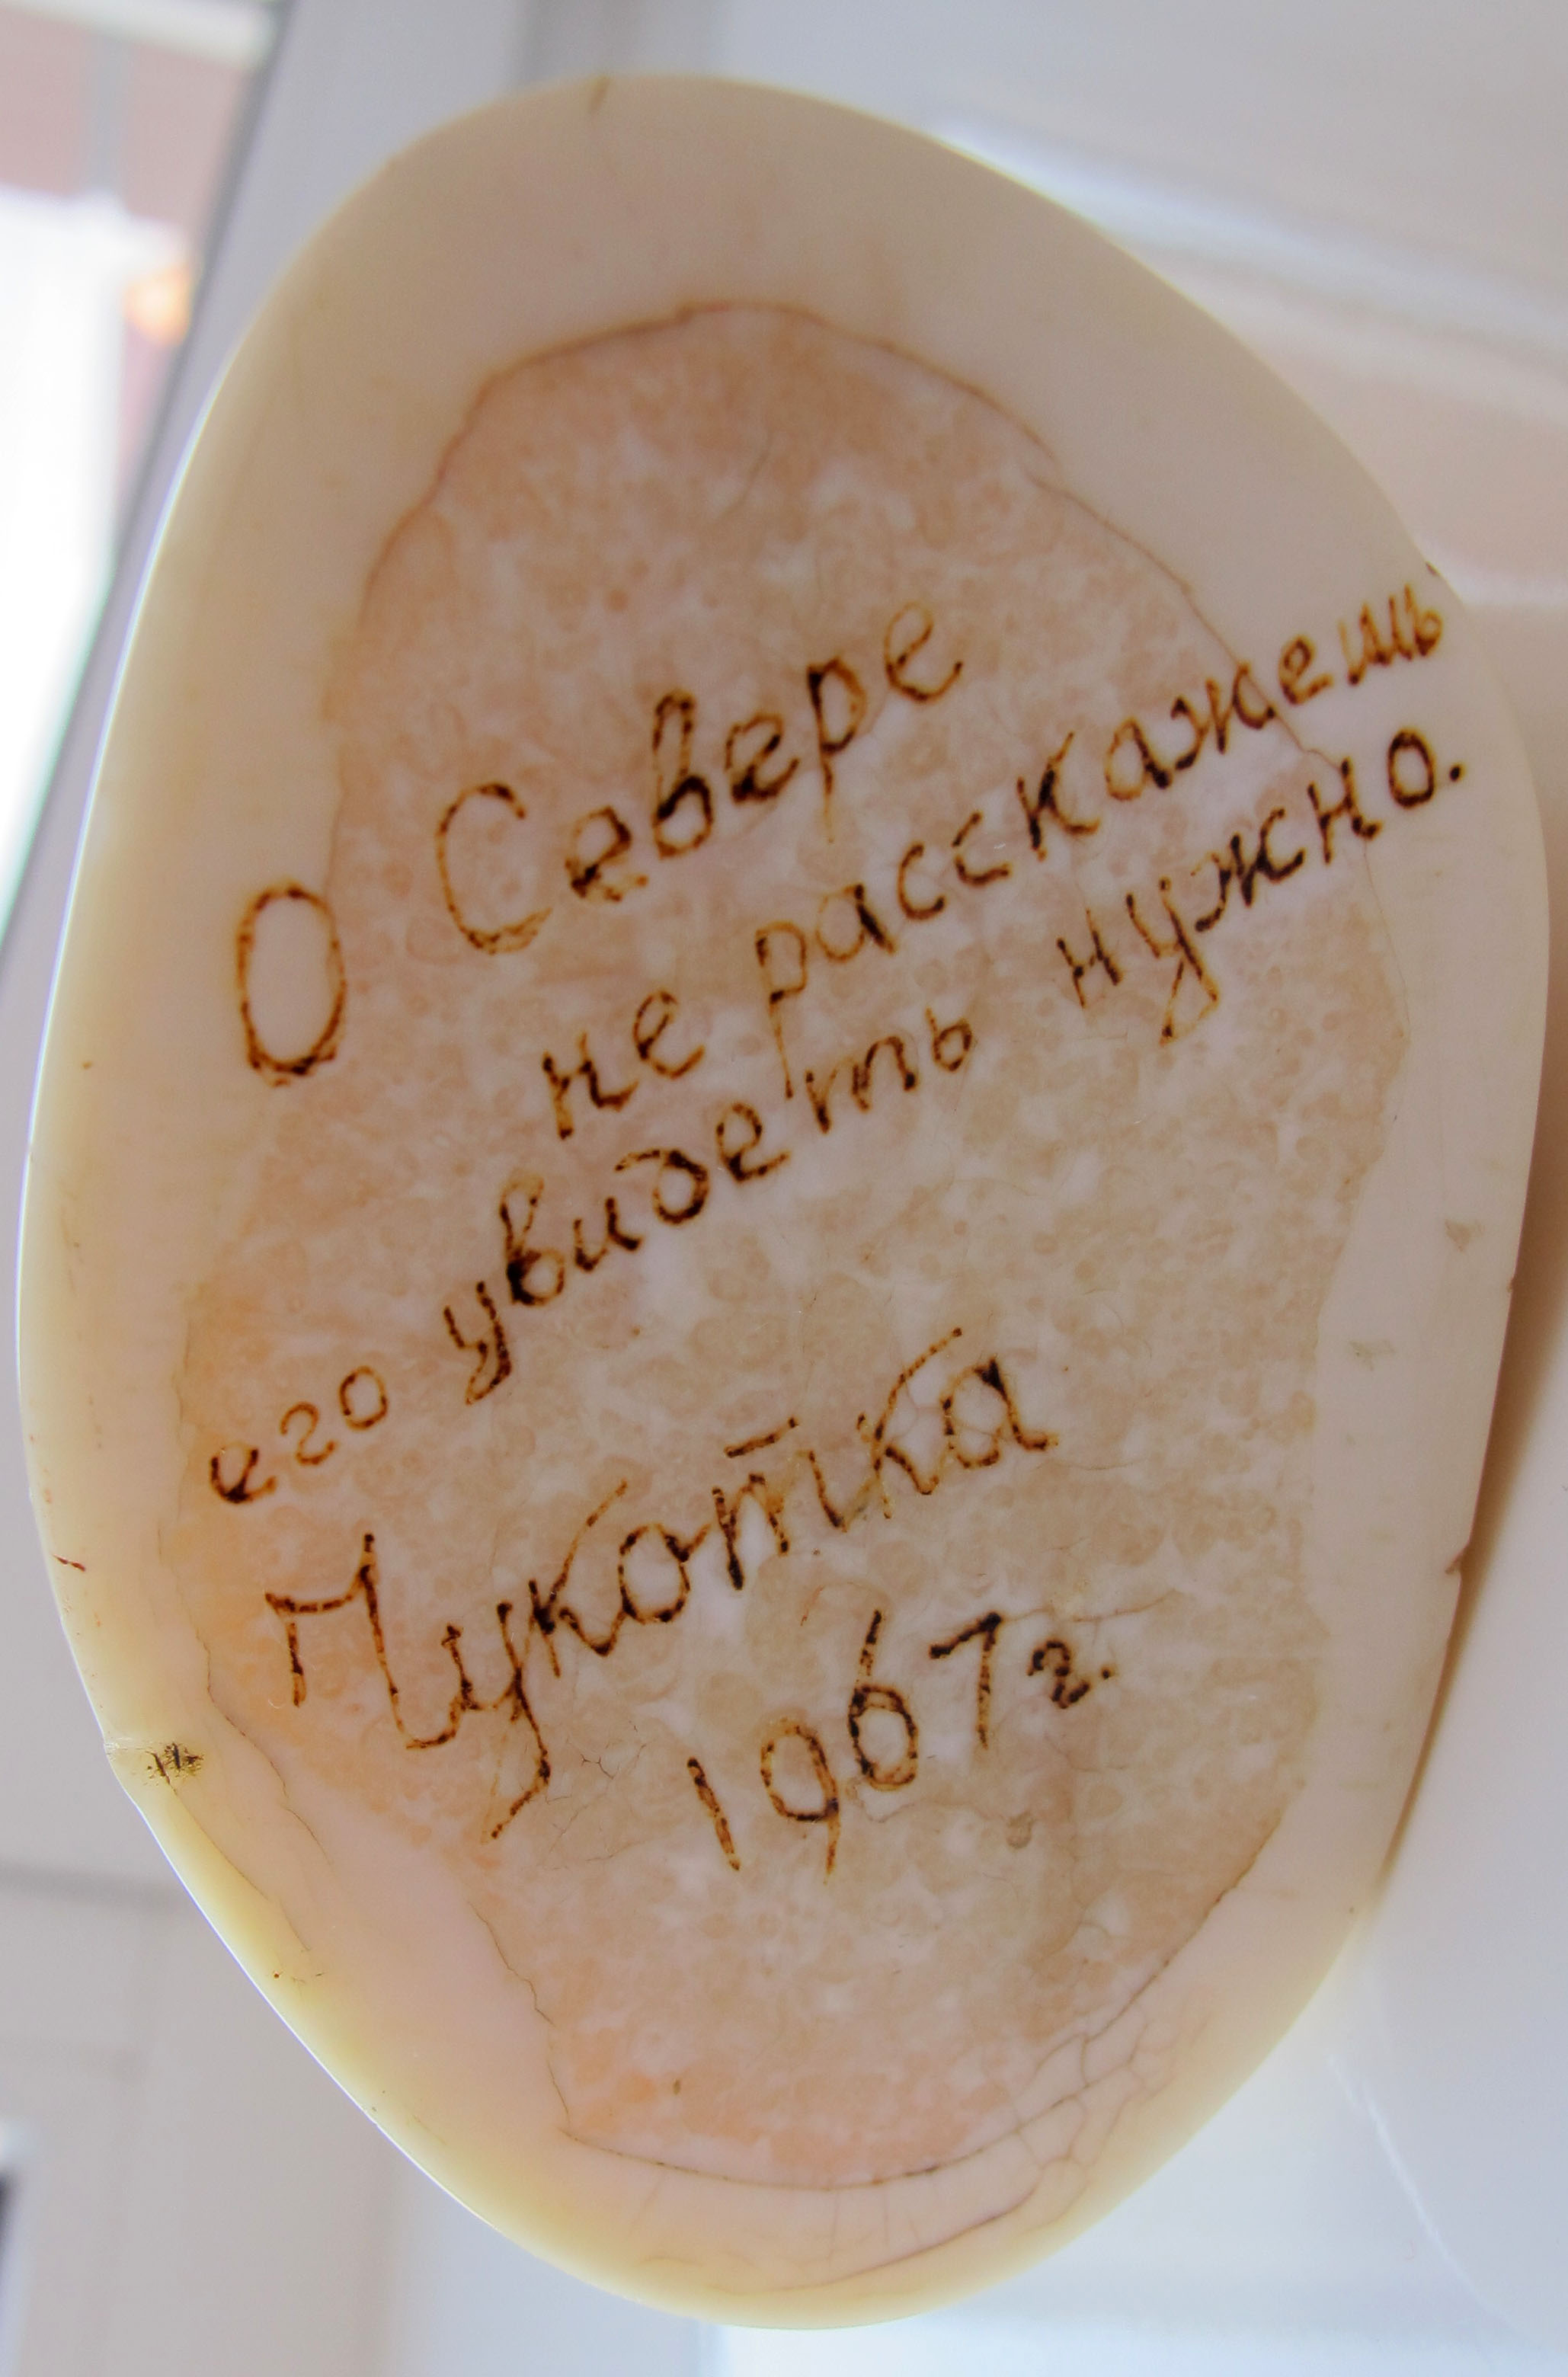 О Севере
не расскажешь
его увидеть нужно.
Чукотка
1967г.